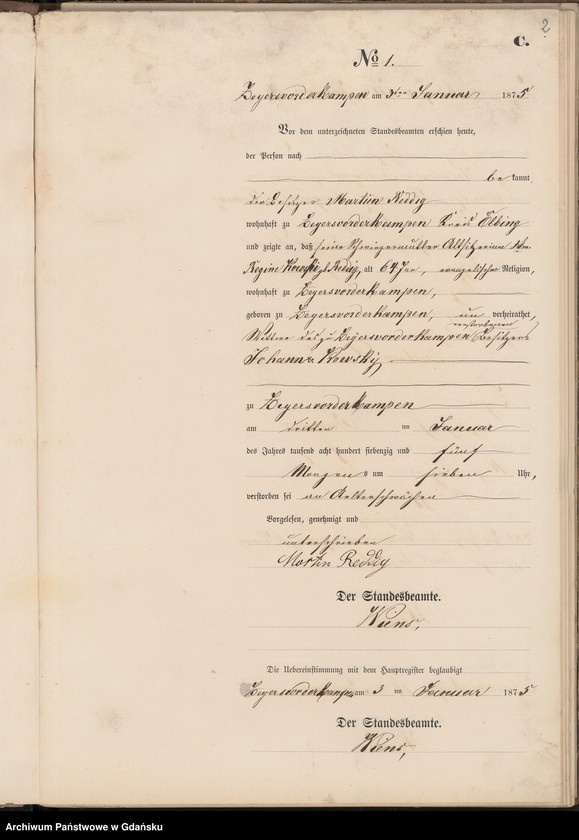 2
C.
No 1.
Zeyersvorderkampen am 3ten Januar 1875
Vor dem unterzeichneten Standesbeamten erschien heute,
der Person nach
be kannt,
der Besitzer Martin Reddig
wohnhaft zu Zeyersvorderkampen Kreis Elbing
und zeigte an, daß seine Schwiegermutter Altsitzerin
Regine Kowsky geb. Reddig, alt 64 Jahr, evangelischer Religion,
wohnhaft zu Zeyersvorderkampen,
geboren zu Zeyersvorderkampen, un verheirathet,
verstorbenen
Wittwe des zu Zeyersvorderkampen Besitzers
Johann Kowsky
zu Zeyersvorderkampen
am dritten im Januar
des Jahres tausend acht hundert siebenzig und fünf
Morgens um sieben Uhr,
verstorben sei an Altersschwäche
Vorgelesen, genehmigt und
unterschrieben
Martin Reddig
Der Standesbeamte.
Wiens,
Die Uebereinstimmung mit dem Hauptregister beglaubigt
Zeyersvorderkampen am 3 ten Januar 1875
Der Standesbeamte.
Wiens,
Archiwum Państwowe w Gdańsku